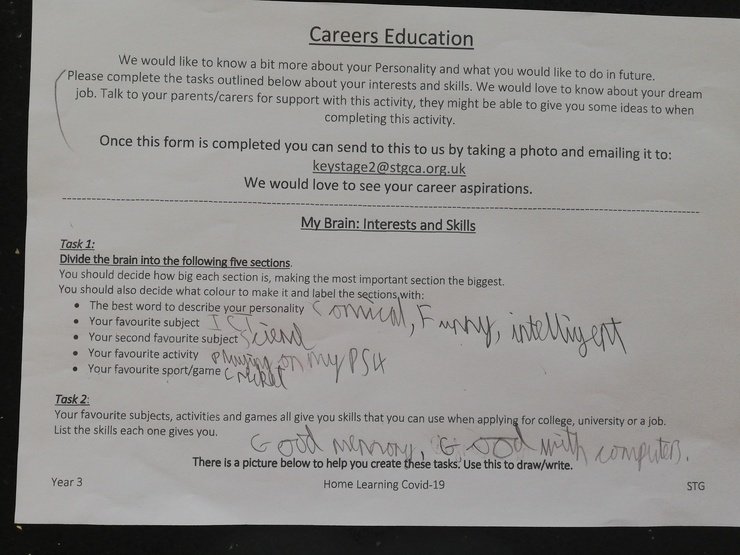 Careers Education
We would like to know a bit more about your Personality and what you would like to do in future.
Please complete the tasks outlined below about your interests and skills. We would love to know about your dream
job. Talk to your parents/carers for support with this activity, they might be able to give you some ideas to when
completing this activity.
Once this form is completed you can send to this to us by taking a photo and emailing it to:
keystage2@stgca.org.uk
We would love to see your career aspirations.
My Brain: Interests and Skills
Task 1:
Divide the brain into the following five sections.
You should decide how big each section is, making the most important section the biggest.
You should also decide what colour to make it and label the sections with:
• The best word to describe your personality Comical, Funny, intelligent
• Your favourite subject ICT
• Your second favourite subject Science
• Your favourite activity playing on my PS4
• Your favourite sport/game Cricket
Task 2:
Your favourite subjects, activities and games all give you skills that you can use when applying for college, university or a job.
List the skills each one gives you.
Good memory, Good with computers.
There is a picture below to help you create these tasks. Use this to draw/write.
Year 3 Home Learning Covid-19 STG